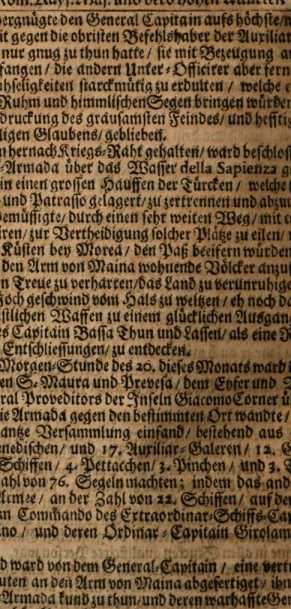 ergnügte den General Capitain aufs höchste/
it gegen die obristen Befehlshaber der Auxiliar
nur gnug zu thun hatte / sie mit Bezeugung
fangen / die andern Unter-Officirer aber fern
hseligkeiten starckmütig zu erdulten / welche
Ruhm und himmlischen Segen bringen würden
druckung des grausamsten Feindes / und hefftig
ligen Glaubens / geblieben.
n hernach Kriegs-Raht gehalten / ward beschlos
-Armada über das Wasser della Sapienza
in einen grossen Hauffen der Türcken / welche
und Patrasso gelagert / zu zertrennen und abzu
emüssigte / durch einen sehr weiten Weg / mit
ren / zur Vertheidigung solcher Plätze zu eilen /
Küsten bey Morea / den Paß beeifern würden
den Arm von Maina wohnende Völcker anzu
n Treue zu verharren / das Land zu verunruhige
Joch geschwind vom Hals zu weltzen / eh noch
stlichen Waffen zu einem glücklichen Ausgan
es Capitain Bassa Thun und Lassen / als eine
Entschliessungen / zu entdecken.
Morgen-Stunde des 20. dieses Monats ward
en S. Maura und Prevesa / dem Eyfer und
ral Proveditors der Inseln Giacomo Corner
ie Armada gegen den bestimmten Ort wandte /
antze Versammlung einfand / bestehend aus
nedischen / und 17. Auxiliar-Galeren / 12. G
Schiffen / 4. Pettacchen / 3. Pinchen / und 3.
ahl von 76. Segeln machten; indem das and
Armee / an der Zahl von 22. Schiffen / auf der
an Commando des Extraordinar-Schiffs-Cap
no / und deren Ordinar-Capitain Girolam
d ward von dem General-Capitain / eine vertr
uten an den Arm von Maina abgefertiget / ihn
Armada kund zu thun / und deren warhaffte Gen